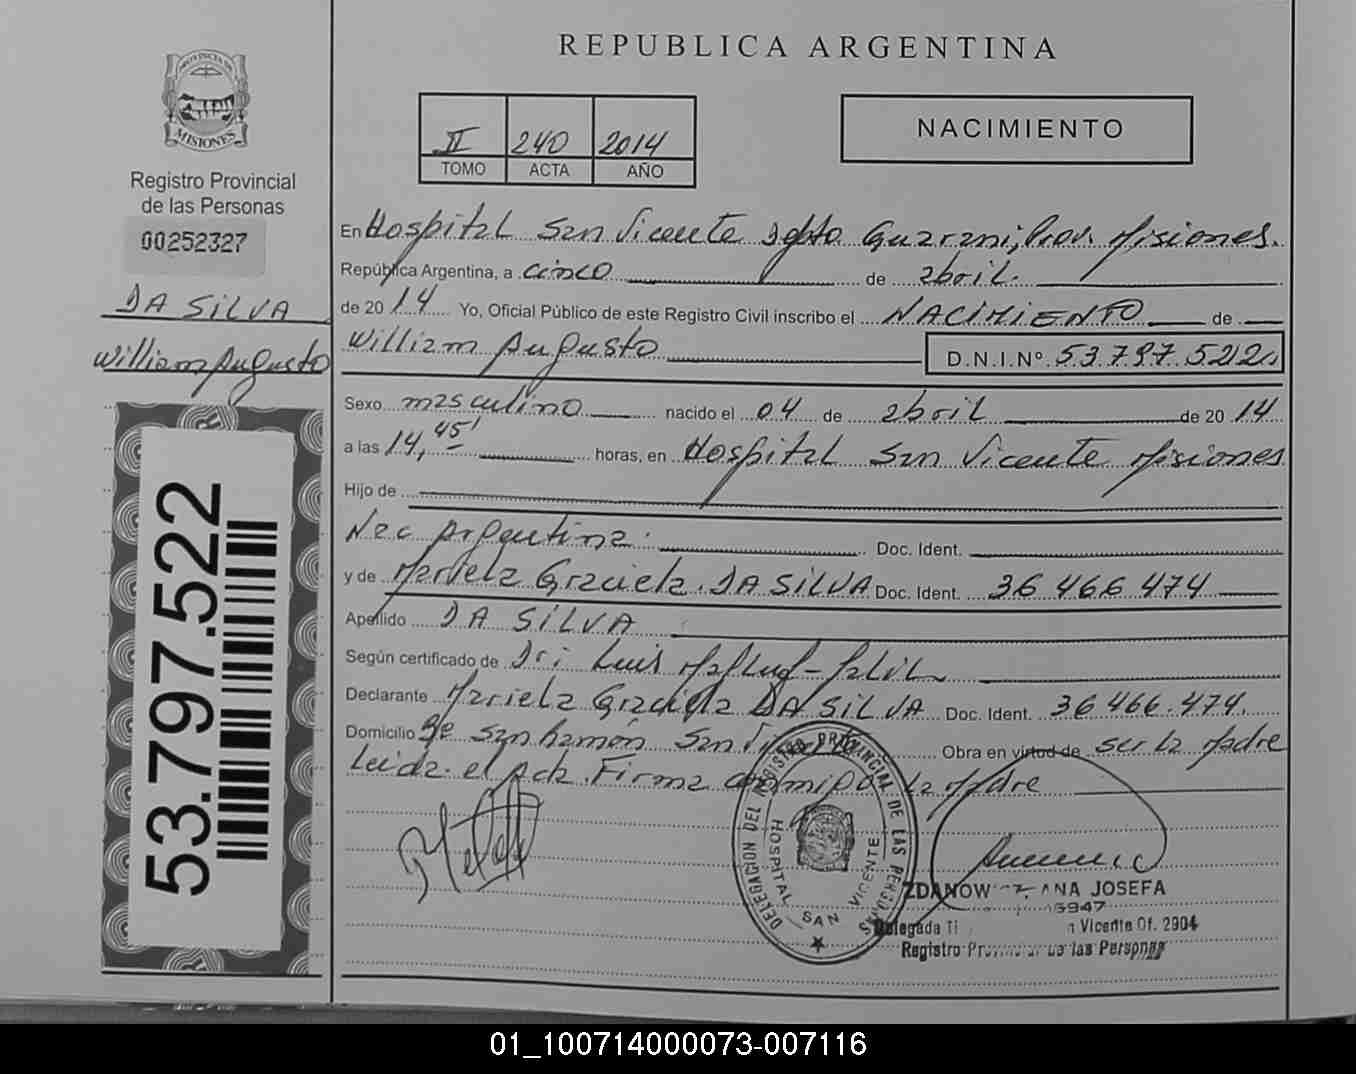 REPUBLICA ARGENTINA
PROVINCIA DE
MISIONES
Registro Provincial
de las Personas
00252327
DA SILVA
William Augusto
53.797.522
II 240 2014
TOMO ACTA AÑO
NACIMIENTO
En Hospital San Vicente Dpto Guarani, Prov. Misiones.
República Argentina, a cinco de abril.
de 20 14 Yo, Oficial Público de este Registro Civil inscribo el NACIMIENTO de
William Augusto D.N.I.Nº 53.797.522
Sexo masculino nacido el 04 de abril de 20 14
a las 14,45' horas, en Hospital San Vicente Misiones
Hijo de
Nac Argentina. Doc. Ident.
y de Mariela Graciela DA SILVA Doc. Ident. 36 466 474
Apellido DA SILVA
Según certificado de Dr: Luis
Declarante Mariela Graciela DA SILVA Doc. Ident. 36 466.474.
Domicilio San Ramón San Vicente Obra en virtud de ser la Madre
Leida el Acta Firma conmigo La Madre
DELEGACION DEL REGISTRO PROVINCIAL DE LAS PERSONAS
HOSPITAL SAN VICENTE
ANA JOSEFA
Delegada Vicente Of. 2904
Registro de las Personas
01_100714000073-007116